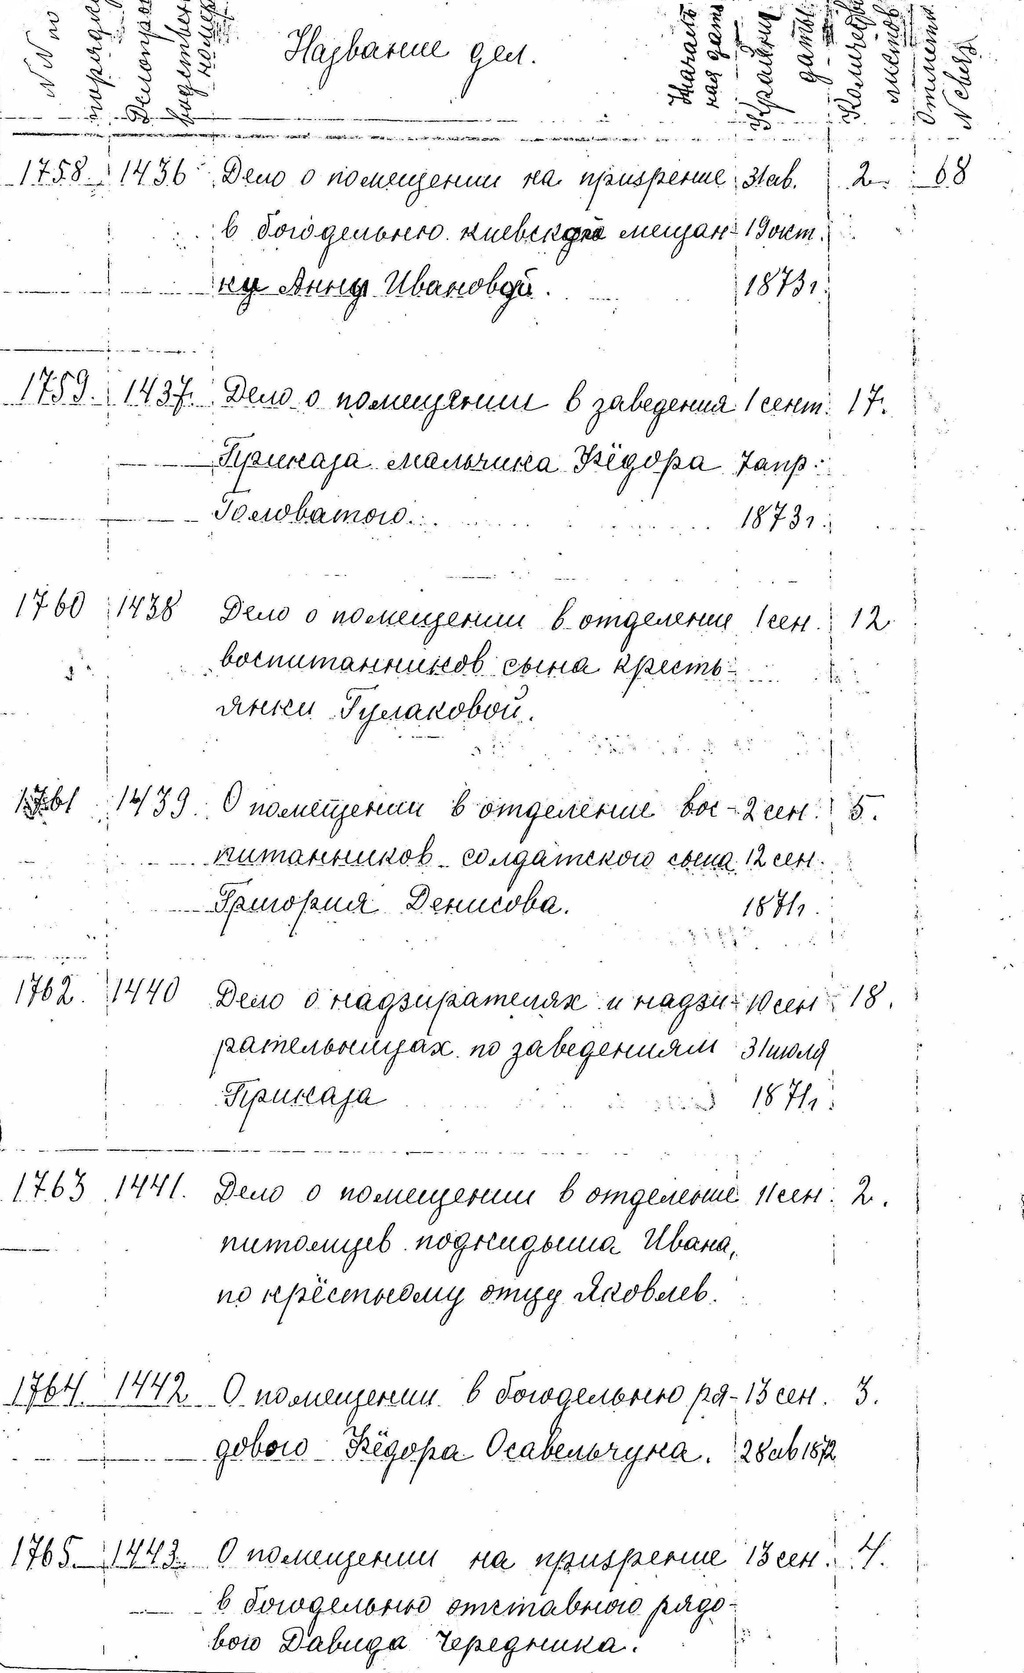 №№ по порядку
Делопроиз
водствен
номер
Название дел.
Началь
ная дата
Крайния
даты
Количество
листов
Отметки
N связ.
1758. 1436 Дело о помещении на призрение 31 ав. 2. 68
в богодельню киевской мещан- 19 окт.
ку Анну Ивановой. 1873 г.
1759. 1437. Дело о помещении в заведения 1 сент. 17.
Приказа мальчика Фёдора 7 апр.
Головатого. 1873 г.
1760 1438 Дело о помещении в отделение 1 сен. 12
воспитанников сына кресть-
янки Гулаковой.
1761 1439. О помещении в отделение вос- 2 сен. 5.
питанников солдатского сына 12 сен.
Григория Денисова. 1871 г.
1762. 1440 Дело о надзирателях и надзи- 10 сен 18.
рательницах по заведениям 31 июля
Приказа 1871 г.
1763 1441. Дело о помещении в отделение 11 сен. 2.
питомцев подкидыша Ивана,
по крёстному отцу Яковлев.
1764. 1442 О помещении в богодельню ря- 13 сен. 3.
дового Фёдора Осавельчука. 28 ав 1872
1765. 1443. О помещении на призрение 13 сен. 4.
в богодельню отставного рядо-
вого Давида Чередника.